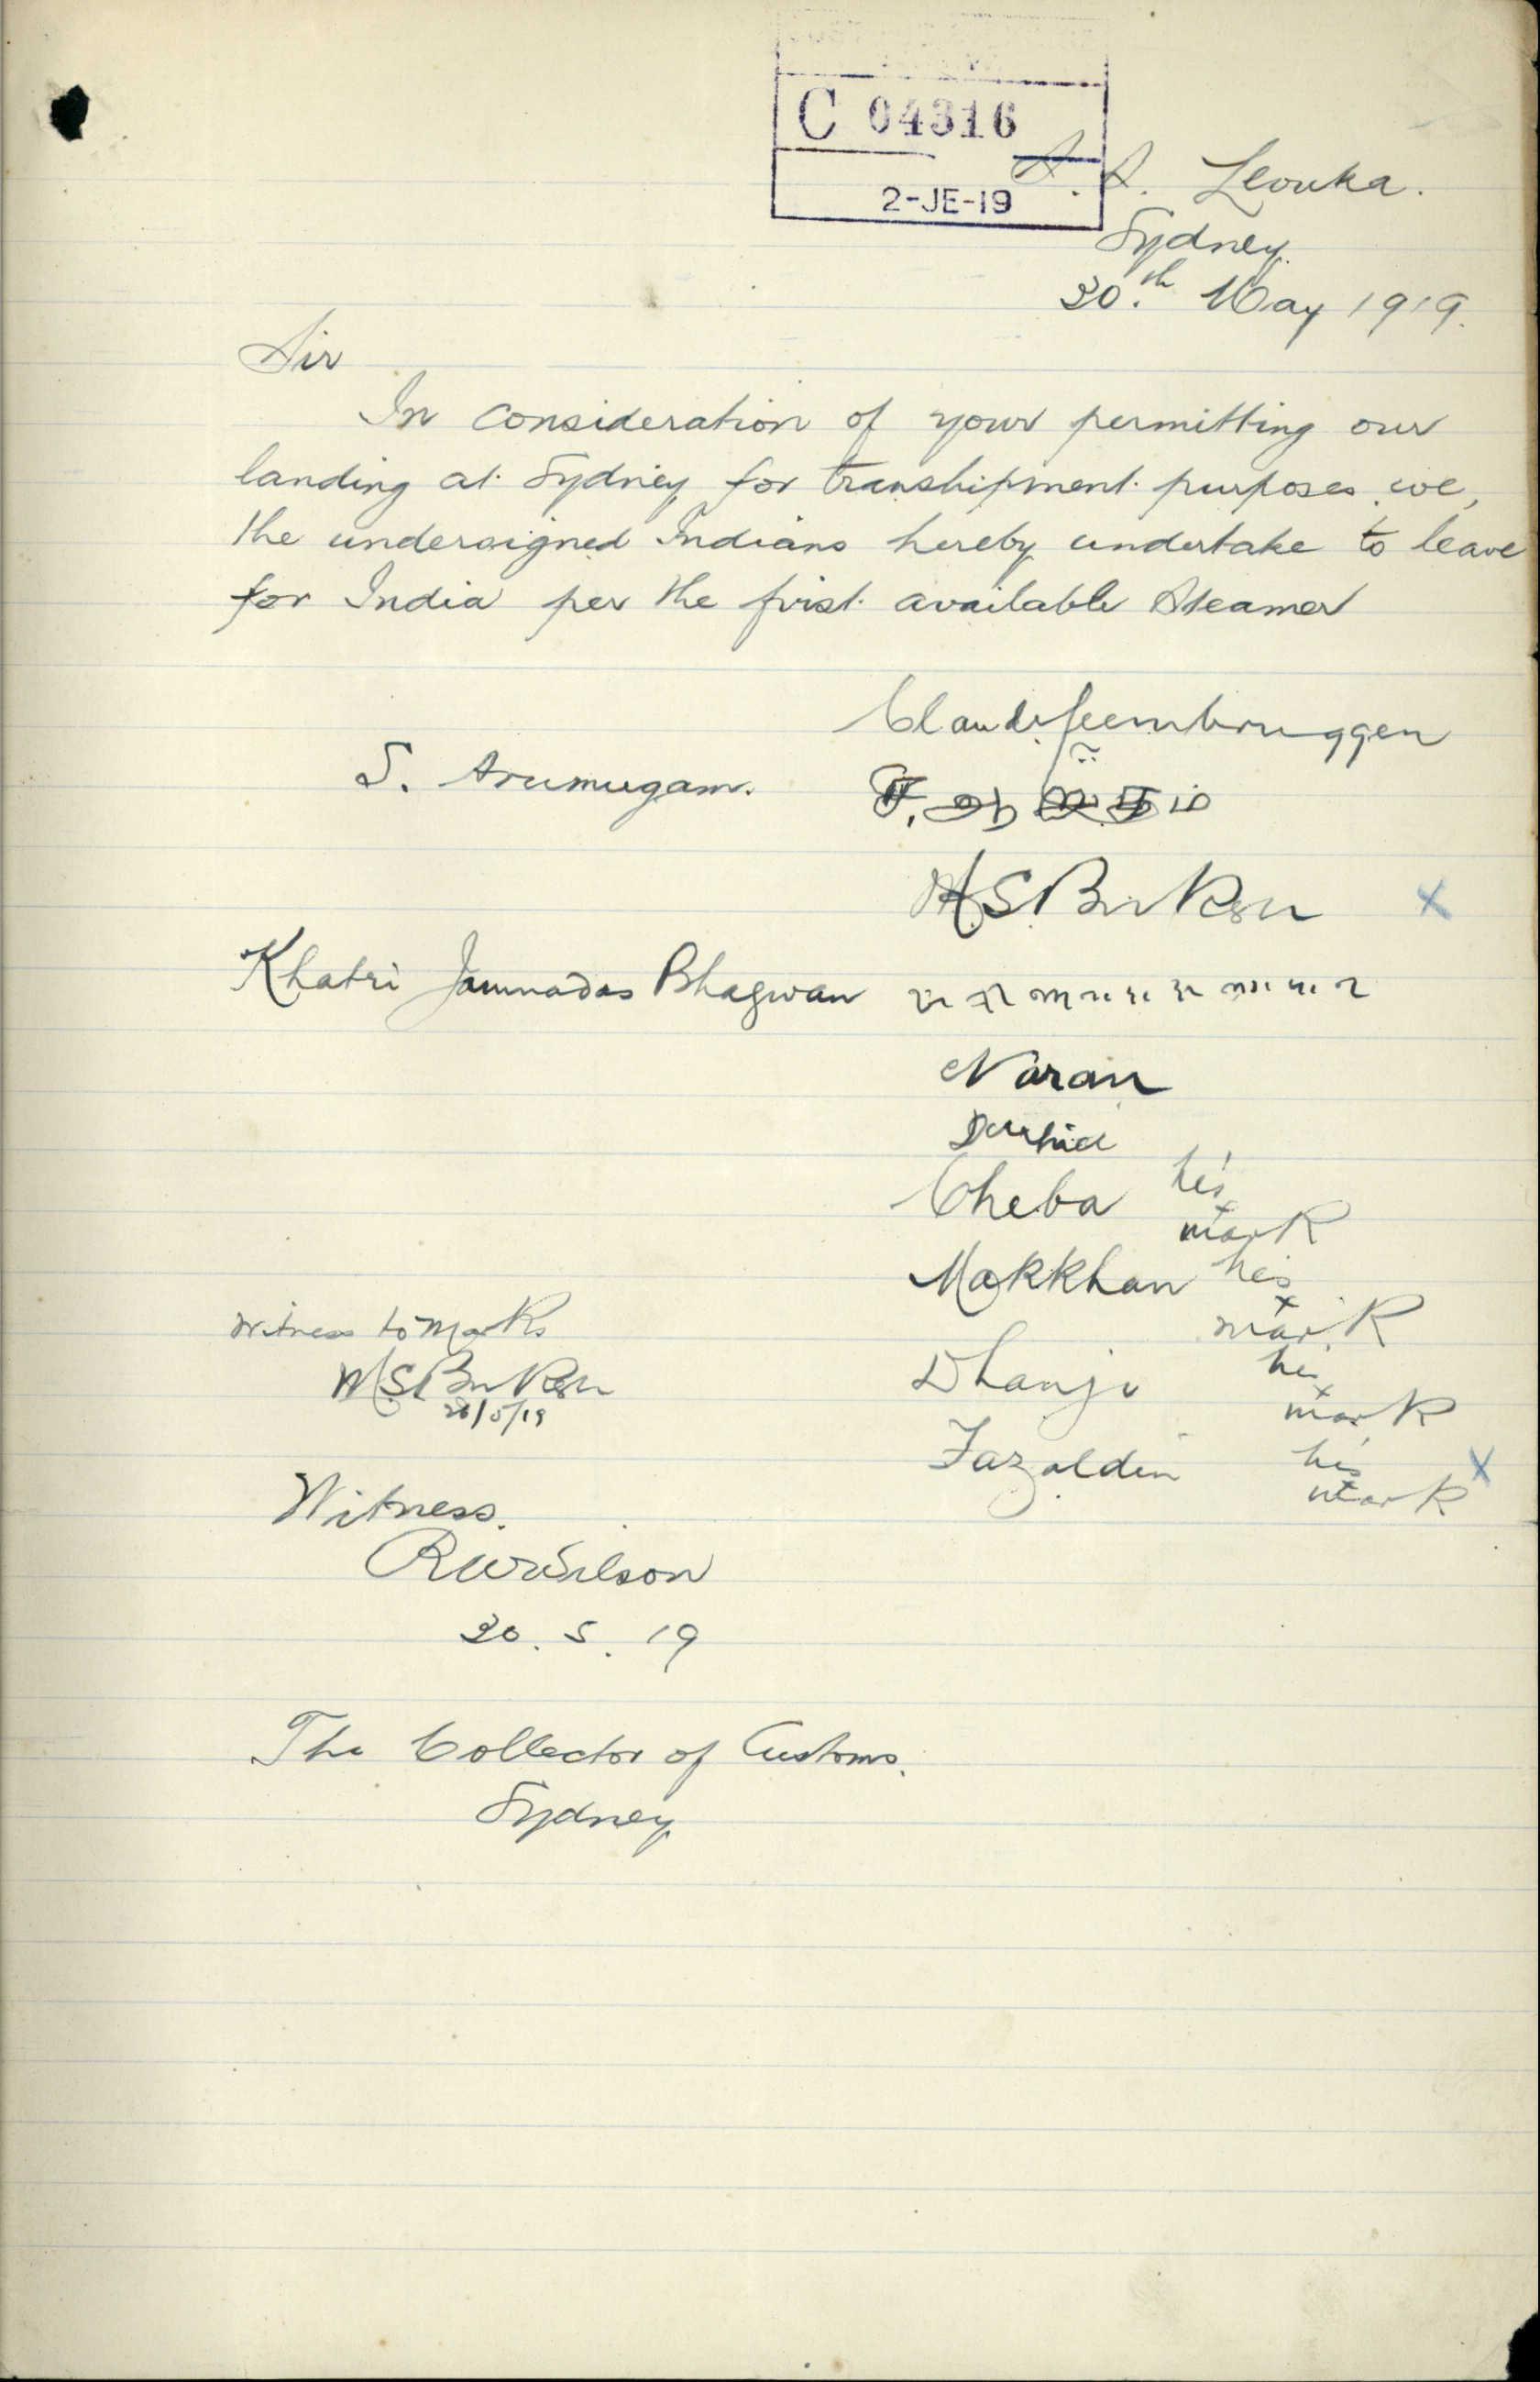 C 04316
2-JE-19
S. S. Levuka.
Sydney.
30.th May 1919.
Sir
In consideration of your permitting our
landing at Sydney for transhipment purposes we,
the undersigned Indians hereby undertake to leave
for India per the first available Steamer
S. Arumugam.
Khatri Jamnadas Bhagwan
Naran
Cheba his
x
mark
Makkhan his
x
mark
Dhanji his
x
mark
Fazaldin his
x
mark
Witness to marks
/5/19
Witness.
RWWilson
30. 5. 19
The Collector of Customs.
Sydney